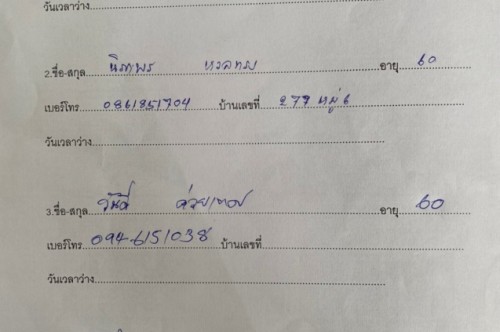 วันเวลาว่าง
2.ชื่อ-สกุล นิรภพร อายุ 60
เบอร์โทร 0861851704 บ้านเลขที่ 277 หมู่ 6
วันเวลาว่าง
3.ชื่อ-สกุล วันดี อายุ 60
เบอร์โทร 094-6151038 บ้านเลขที่
วันเวลาว่าง